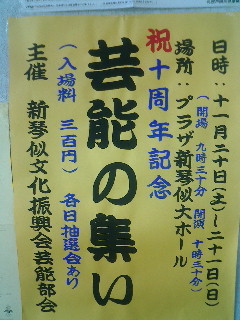 日時：十一月二十日(土)～二十一日(日)
(開場 九時三十分 開演 十時三十分)
場所：プラザ新琴似大ホール
祝十周年記念
芸能の集い
(入場料 三百円) 各日抽選会あり
主催 新琴似文化振興会芸能部会